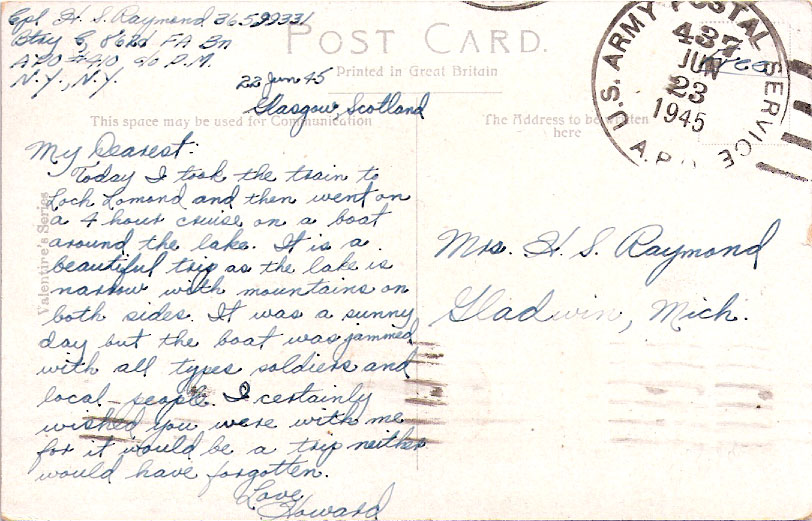 Cpl H. S. Raymond 36599331
Btry C, 862d FA Bn
APO #410 % P.M.
N.Y., N.Y.
POST CARD.
Printed in Great Britain
22 Jun 45
Glasgow, Scotland
This space may be used for Communication
The Address to be written
here
U.S. ARMY POSTAL SERVICE
A.P.
437
JUN
23
1945
Free
My Dearest:
Today I took the train to
Loch Lomond and then went on
a 4 hour cruise on a boat
around the lake. It is a
beautiful trip as the lake is
narrow with mountains on
both sides. It was a sunny
day but the boat was jammed
with all types soldiers and
local people. I certainly
wished you were with me
for it would be a trip neither
would have forgotten.
Love,
Howard
Valentine's Series
Mrs. H. S. Raymond
Gladwin, Mich.